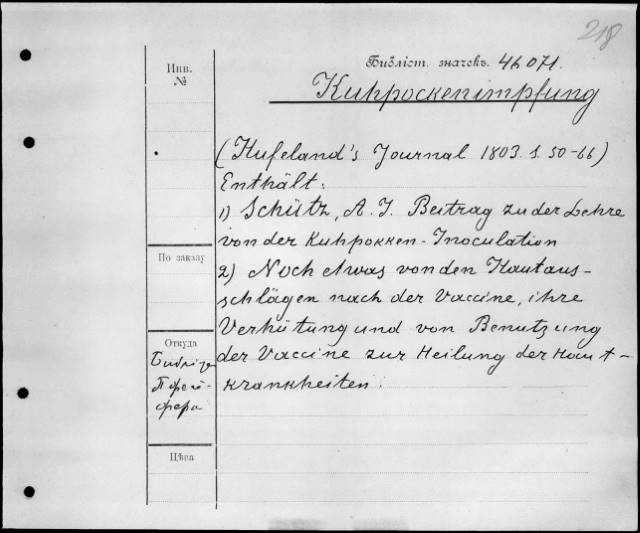 218
Библіот. значекъ. 46071.
Kuhpockenimpfung
Инв.
№
(Hufeland's Journal 1803. S. 50-66)
Enthält:
1) Schütz, A. J. Beitrag zu der Lehre
von der Kuhpokken-Inoculation
По заказу
2) Noch etwas von den Hautaus-
schlägen nach der Vaccine, ihre
Verhütung und von Benutzung
der Vaccine zur Heilung der Haut-
krankheiten.
Откуда
Цѣна